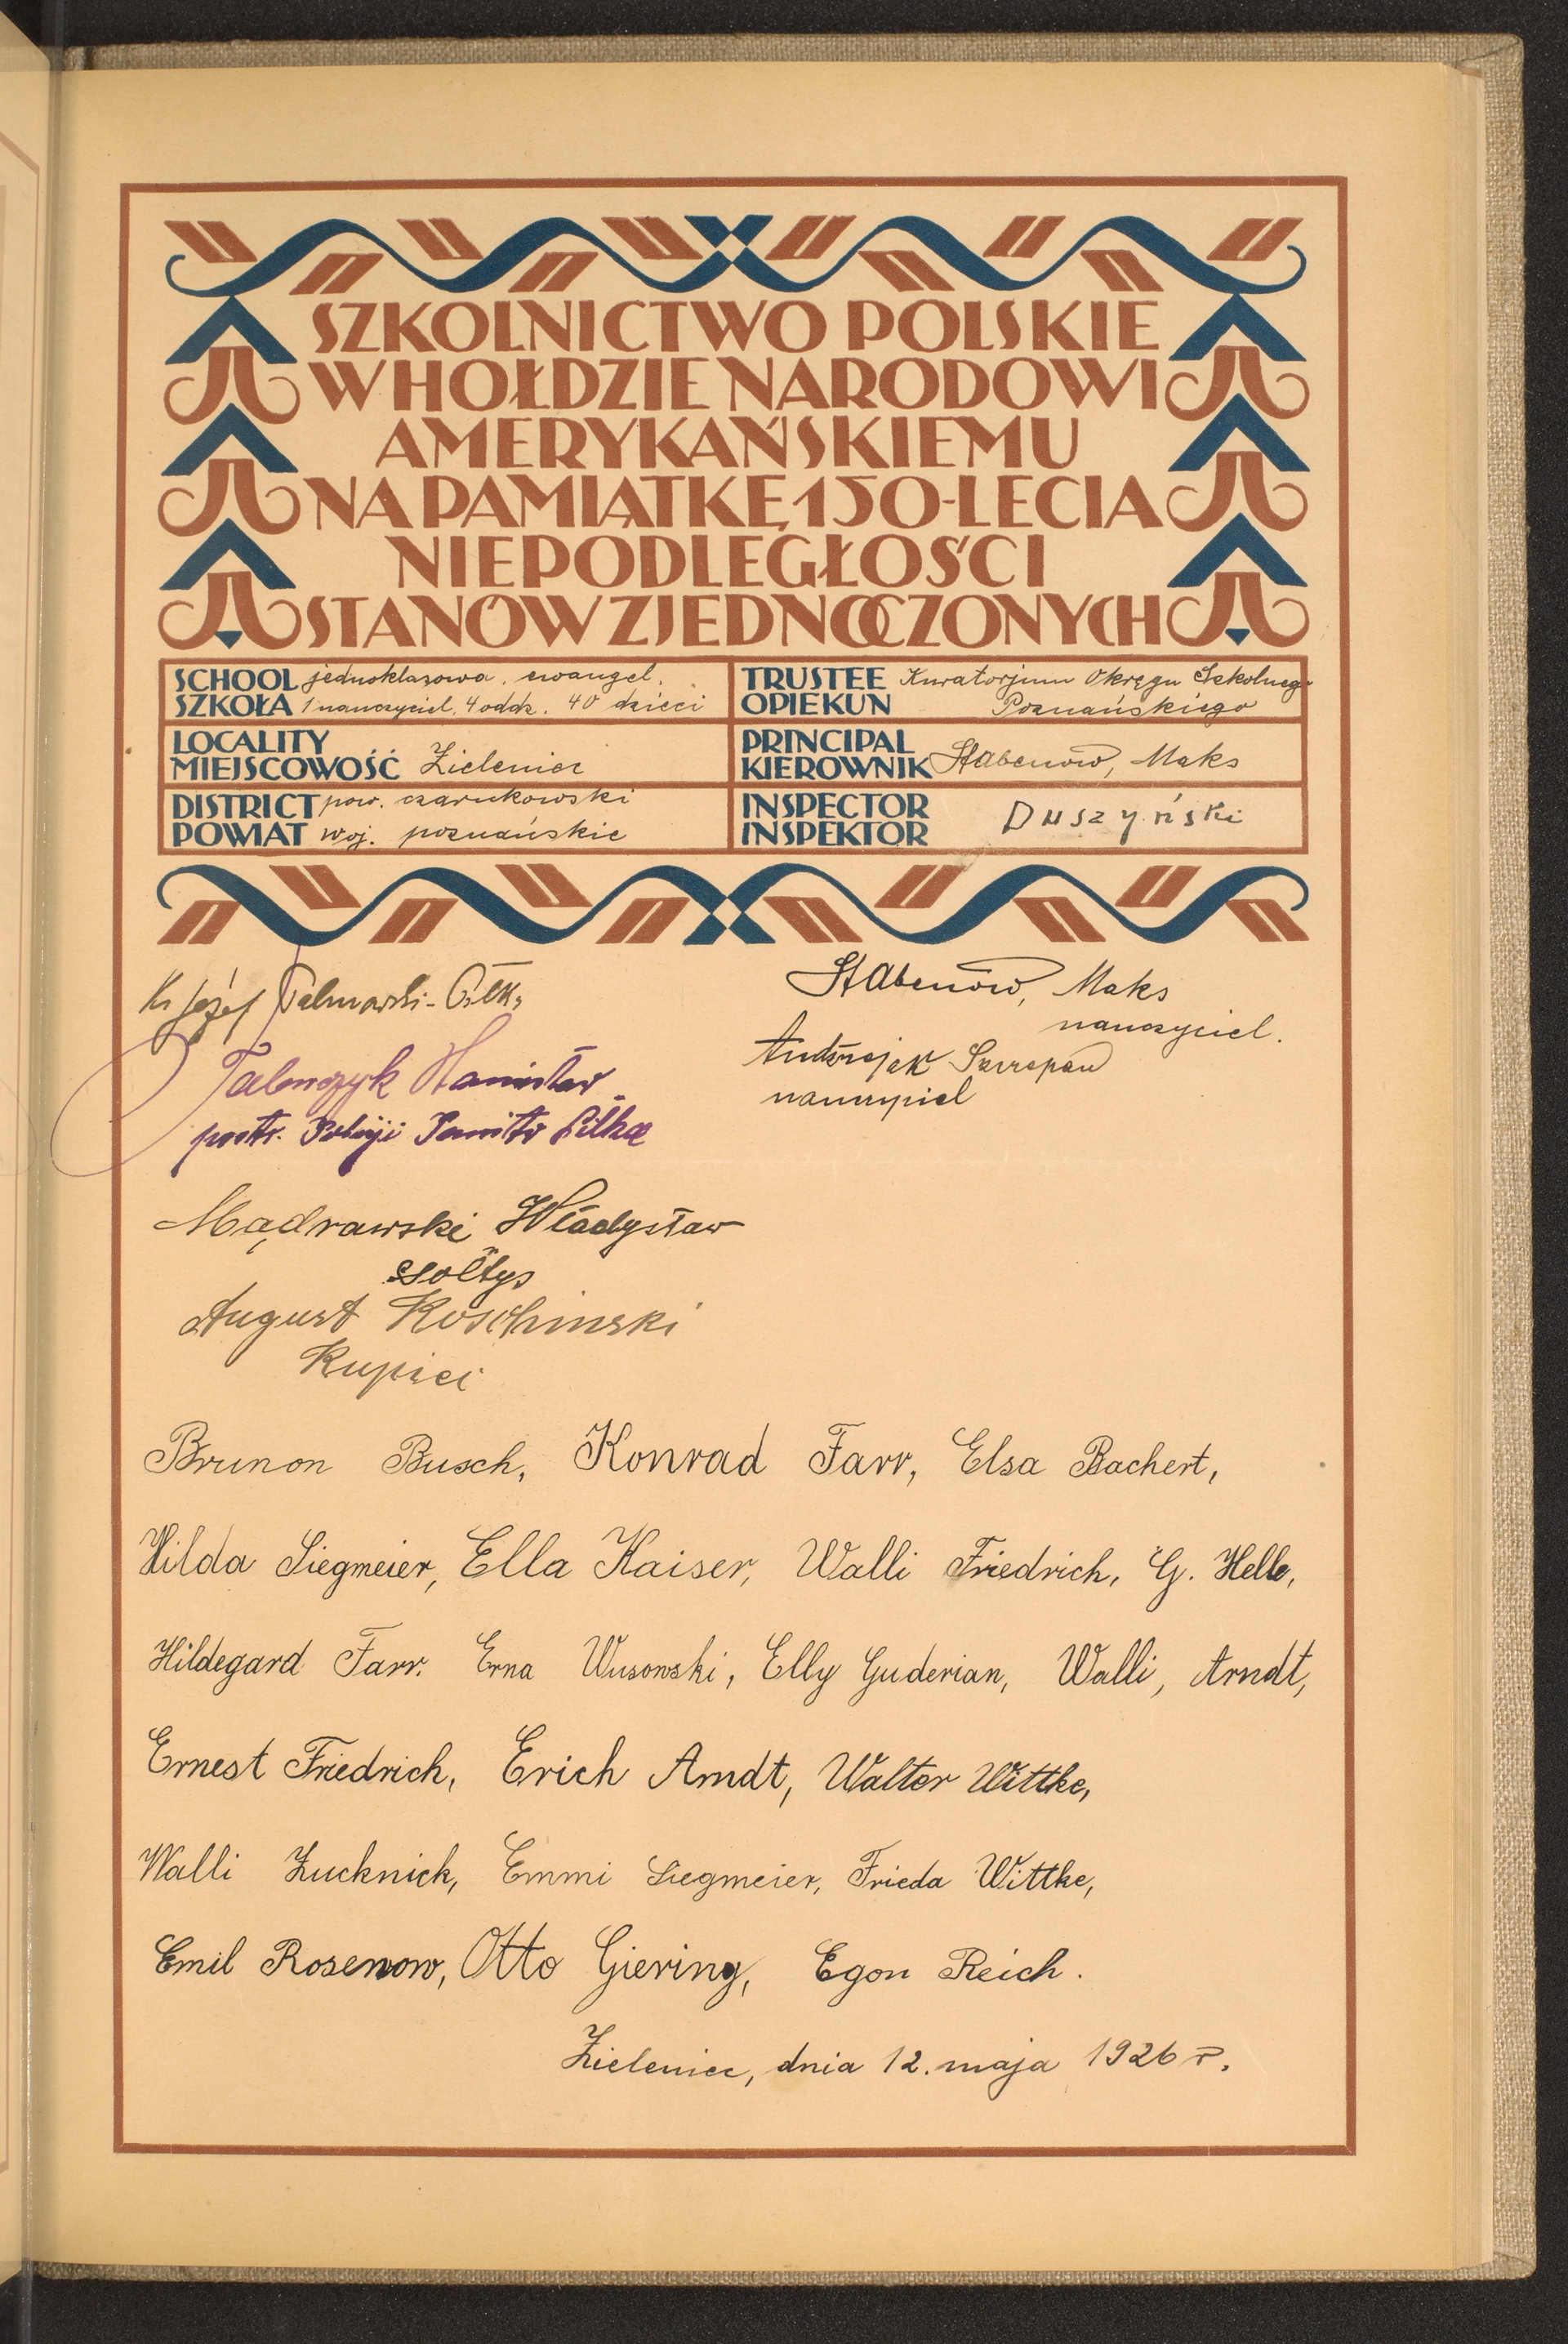 SZKOLNICTWO POLSKIE
W HOŁDZIE NARODOWI
AMERYKAŃSKIEMU
NA PAMIĄTKĘ 150-LECIA
NIEPODLEGŁOŚCI
STANÓW ZJEDNOCZONYCH
SCHOOL jednoklasowa, ewangel.
SZKOŁA 1 nauczyciel, 4 oddz. 40 dzieci
LOCALITY
MIEJSCOWOŚĆ Zieleniec
DISTRICT pow. czarnkowski
POWIAT woj. poznańskie
TRUSTEE Kuratorjum Okręgu Szkolnego
OPIEKUN Poznańskiego
PRINCIPAL
KIEROWNIK Stabenow, Maks
INSPECTOR
INSPEKTOR Duszyński
Ks Józef
Stabenow, Maks
nauczyciel.
Andrzejek Szczepan
nauczyciel
Mądrawski Władysław
sołtys
August Koschinski
Kupiec
Brunon Busch, Konrad Farr, Elsa Bachert,
Hilda Siegmeier, Ella Kaiser, Walli Friedrich, G. Helle,
Hildegard Farr. Erna Wusowski, Elly Guderian, Walli, Arndt,
Ernest Friedrich, Erich Arndt, Walter Wittke,
Walli Zucknick, Emmi Siegmeier, Frieda Wittke,
Emil Rosenow, Otto Giering, Egon Reich.
Zieleniec, dnia 12. maja 1926 r.